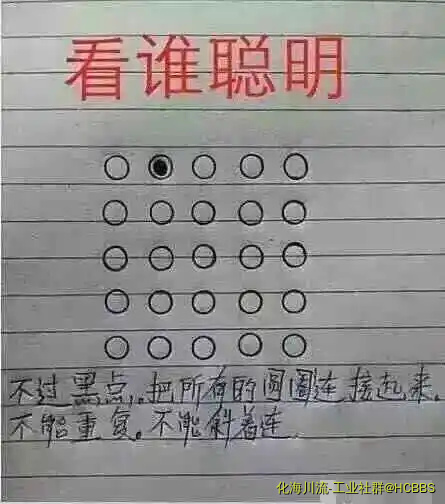 看谁聪明
不过黑点，把所有的圆圈连接起来，
不能重复。不能斜着连
化海川流-工业社群@HCBBS